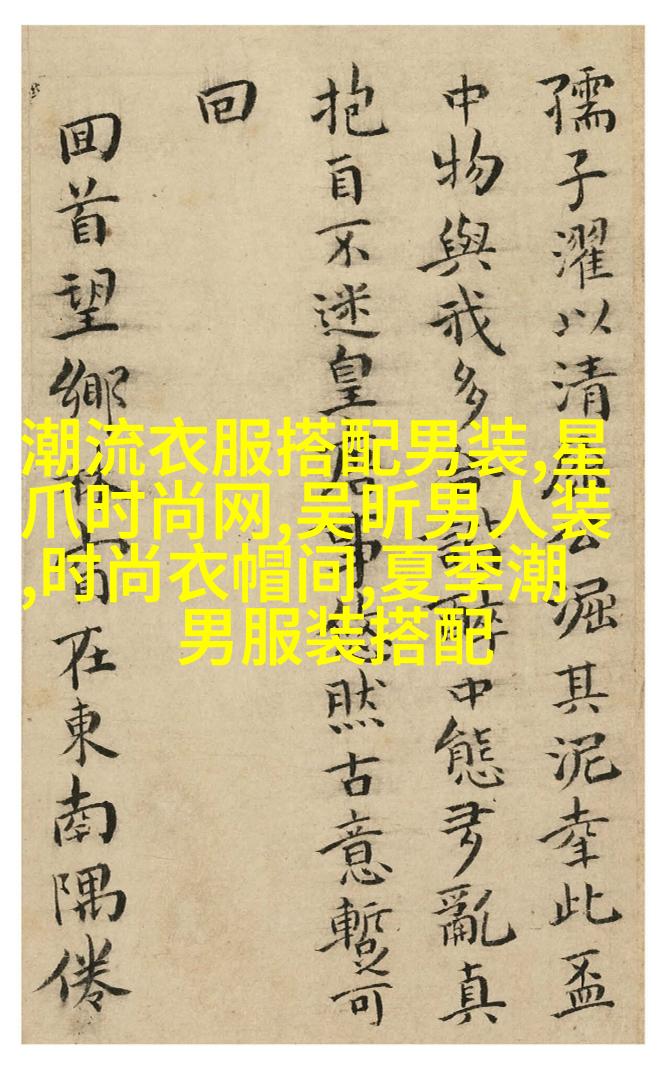 孺子濯以清屈公淈其泥幸此盃
中物與我多醉中態亂真
抱自不迷皇然古意暫可
回
回首望鄉在東南隅倦
潮流衣服搭配男装,星
爪时尚网,吴昕男人装
,时尚衣帽间,夏季潮
男服装搭配